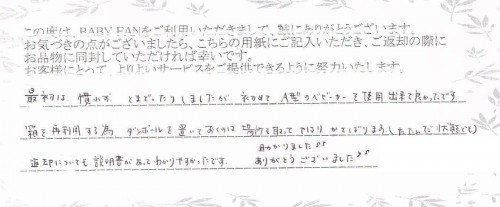 この度は、BABY FANをご利用いただきまして、誠にありがとうございます。
お気づきの点がございましたら、こちらの用紙にご記入いただき、ご返却の際に
お品物に同封していただければ幸いです。
お客様にとって、よりよいサービスをご提供できるように努力いたします。
最初は、慣れず とまどったりしましたが 初めて A型のベビーカーを使用出来て良かったです。
箱を再利用する為 ダンボールを置いておくのは 場所を取って やはり かさばります(したたんだ状態でも)
返却についても説明書があってわかりやすかったです。
助かりました♪♪
ありがとうございました♪♪